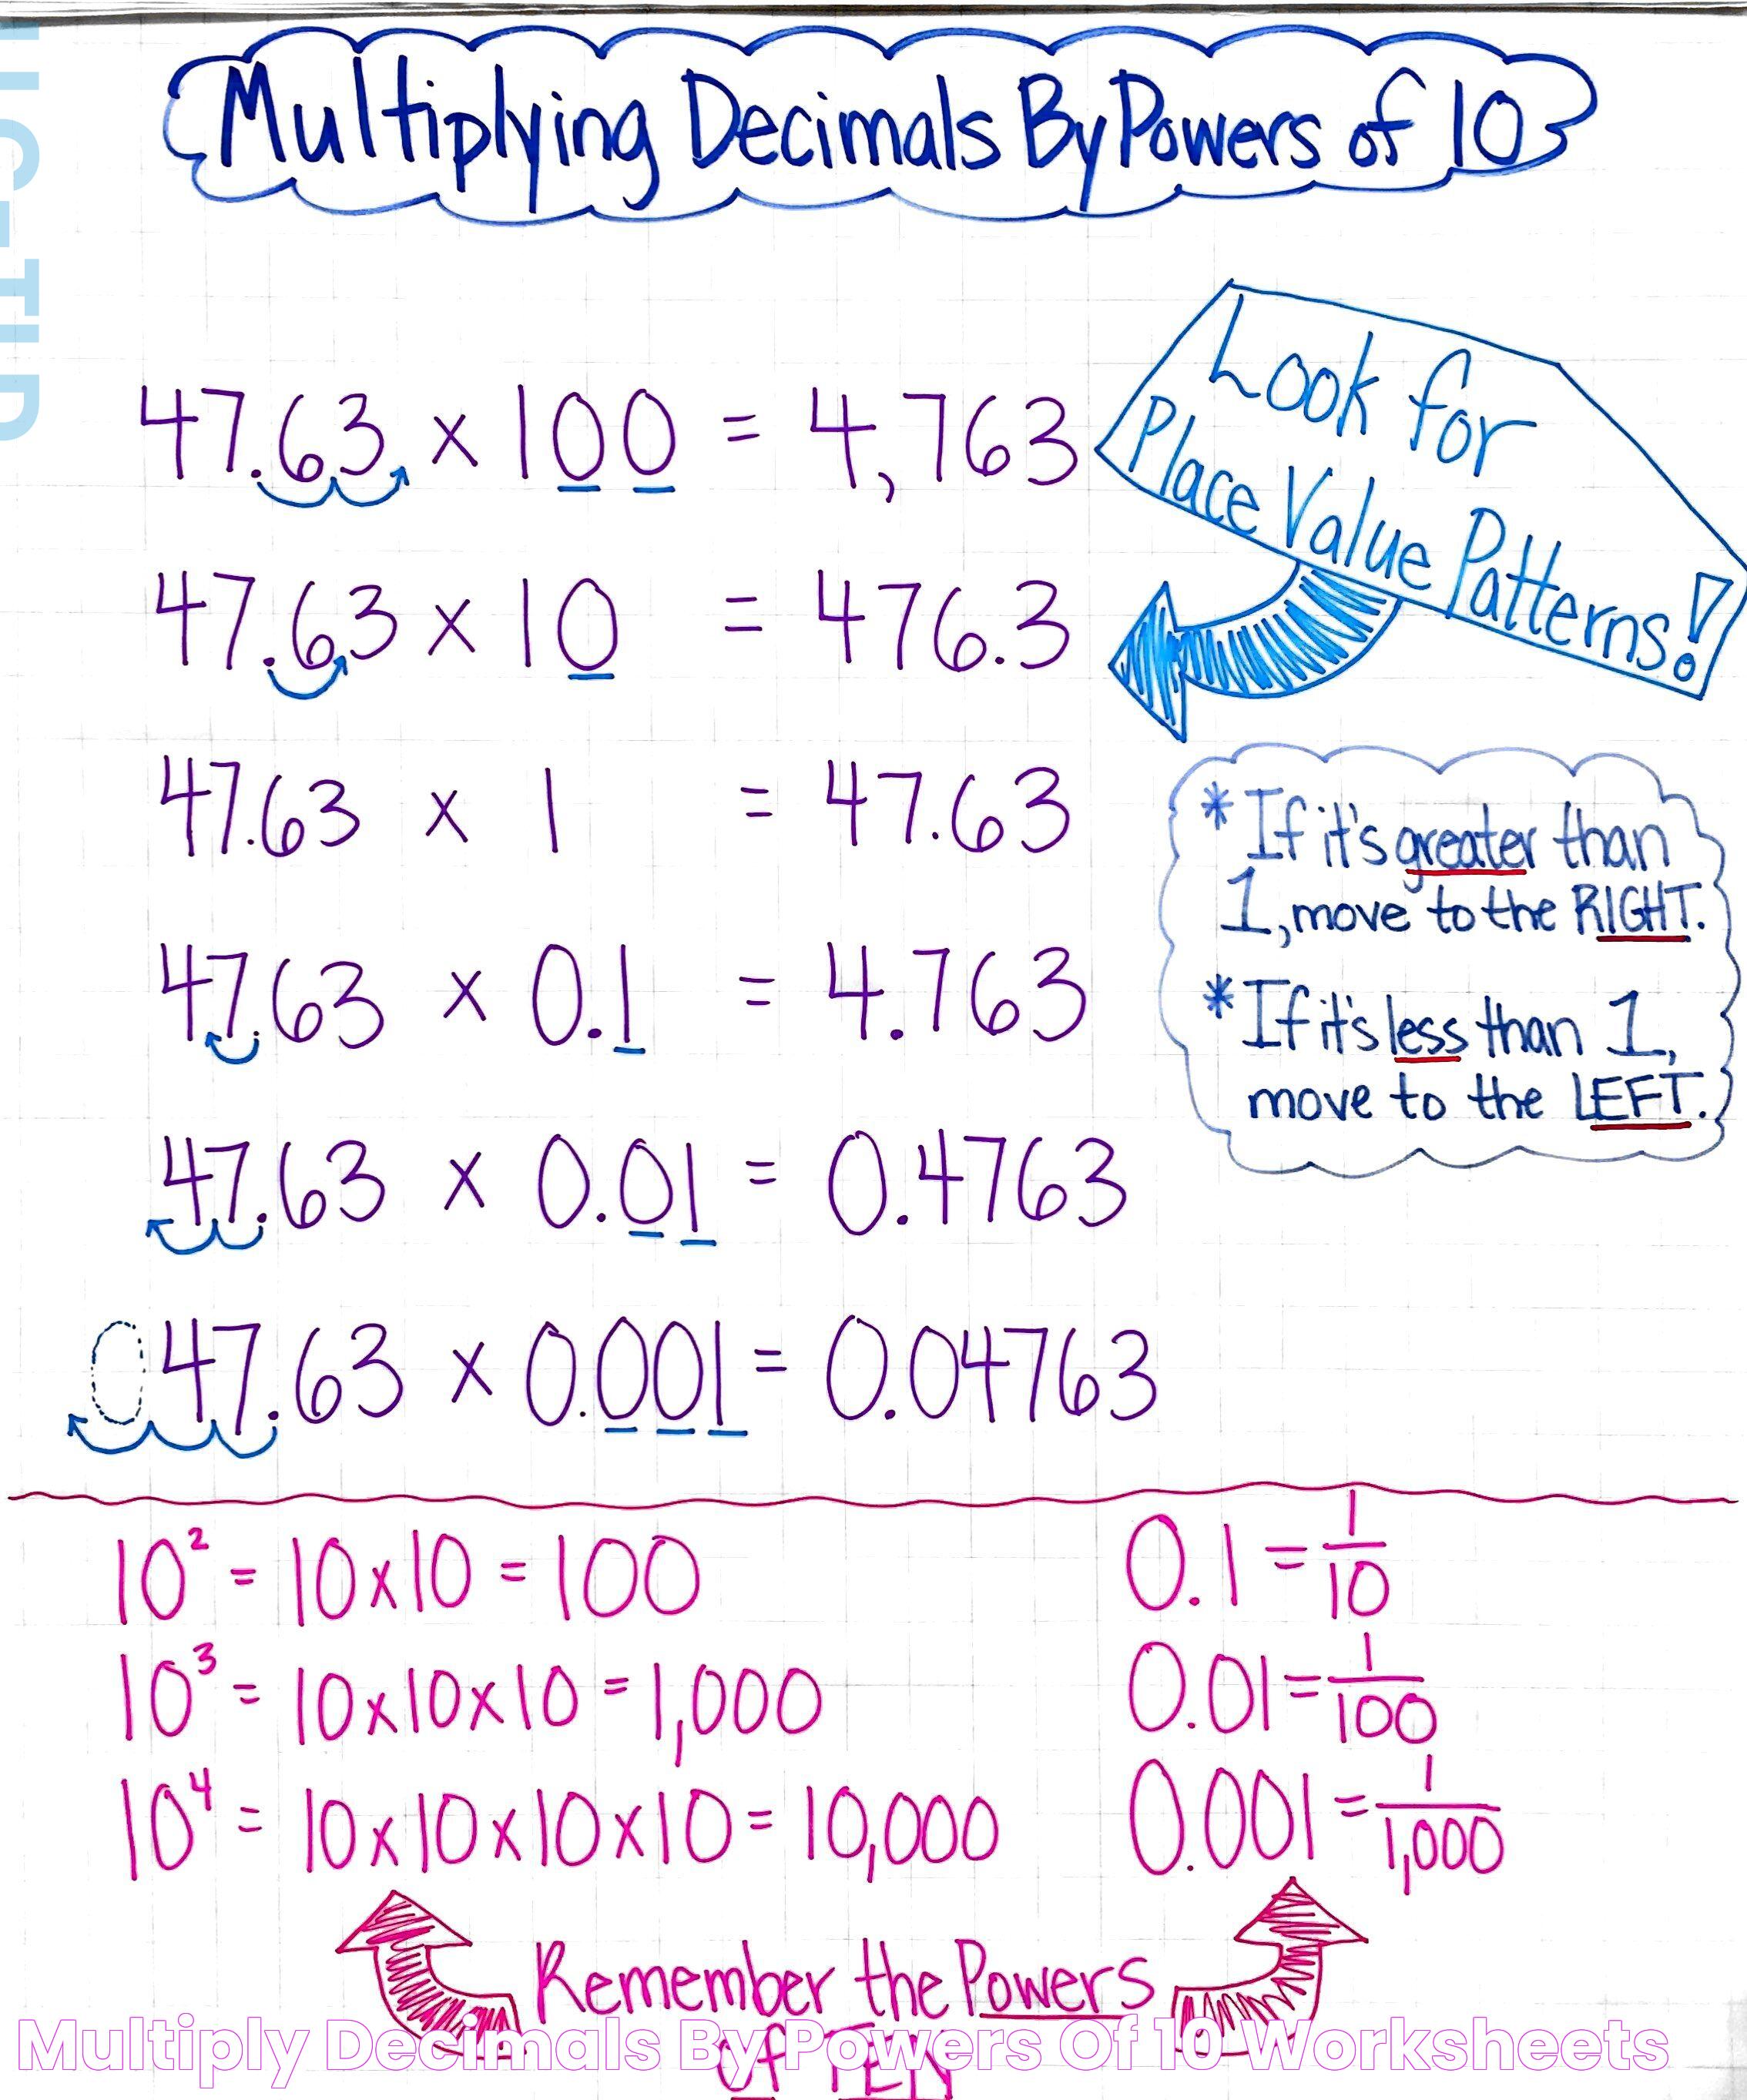 Multiplying Decimals By Powers of 10
47.63 x 100 = 4,763
47.63 x 10 = 476.3
47.63 x 1 = 47.63
47.63 x 0.1 = 4.763
47.63 x 0.01 = 0.4763
047.63 x 0.001 = 0.04763
Look for
Place Value Patterns!
* If it's greater than
1, move to the RIGHT.
* If it's less than 1,
move to the LEFT.
10² = 10x10 = 100
10³ = 10x10x10 = 1,000
10⁴ = 10x10x10x10 = 10,000
0.1 = 1/10
0.01 = 1/100
0.001 = 1/1,000
Remember the Powers
of TEN
Multiply Decimals By Powers Of 10 Worksheets